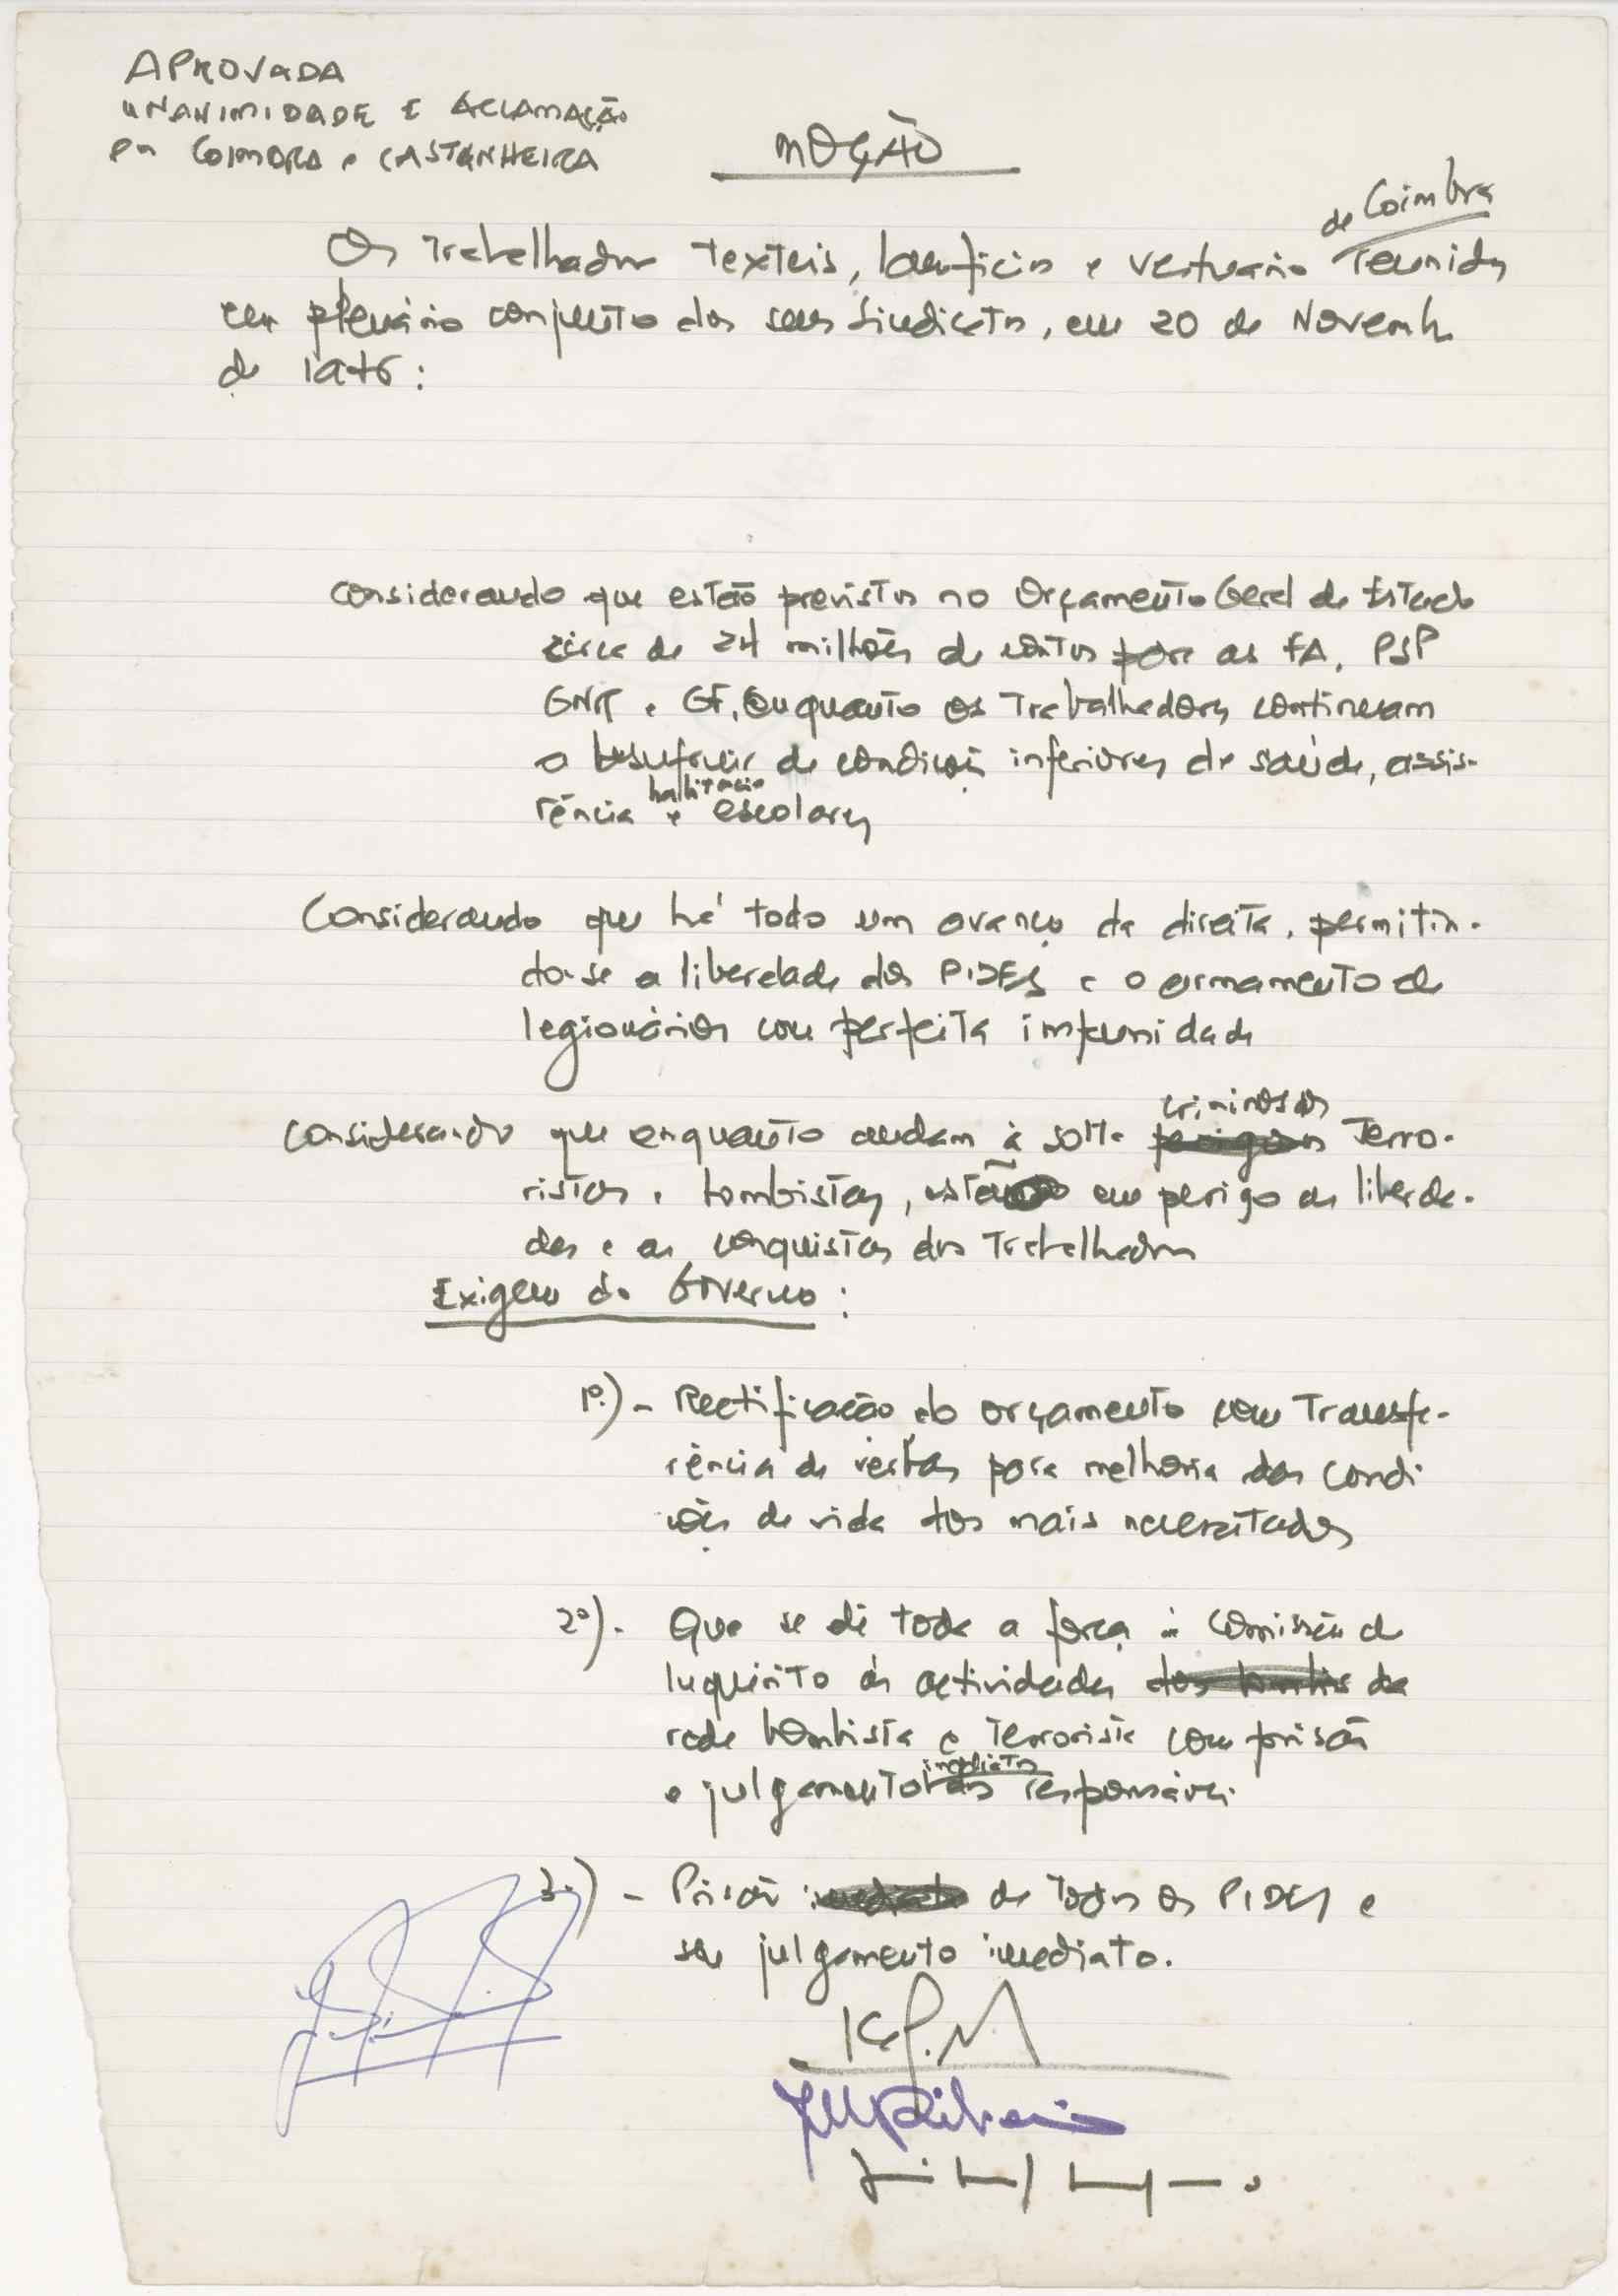 APROVADA
UNANIMIDADE E ACLAMAÇÃO
em COIMBRA e CASTANHEIRA
MOÇÃO
de Coimbra
Os Trabalhadores Texteis, lanificios e vestuario reunidos
em plenário conjunto dos seus Sindicatos, em 20 de Novembro
de 1976:
Considerando que estão previstos no Orçamento Geral de Estado
cerca de 24 milhões de contos para as FA, PSP
GNR e GF, enquanto os Trabalhadores continuam
a usufruir de condições inferiores de saúde, assis-
habitação
tência e escolares
Considerando que há todo um avanço da direita, permitin-
do-se a liberdade dos PIDES e o armamento de
legionários com perfeita impunidade
criminosos
Considerando que enquanto andam à solta perigosos Terro-
ristas e bombistas, estão em perigo as liberda-
des e as conquistas dos Trabalhadores
Exigem do Governo:
1º.) - Rectificação do orçamento com Transfe-
rência de verbas para melhoria das condi
ções de vida dos mais necessitados
2º). Que se dê toda a força à Comissão de
Inquérito às actividades dos bombis da
rede bombista e Terrorista com prisão
imediatos
e julgamento dos responsáveis
3.) - Prisão imediata de todos os PIDES e
seu julgamento imediato.